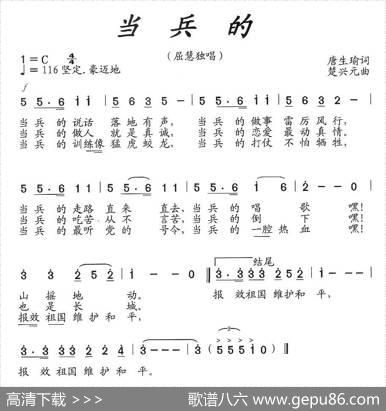 当兵的
(屈慧独唱)
1=C 4/4
♩=116 坚定.豪迈地
唐生瑜词
楚兴元曲
f
5 5·6 i i | 5 6 3 5 - | 5 5·6 i i | 5 6 3 2 - |
当兵的说话 落地有声, 当兵的做事 雷厉风行,
当兵的做人 就是真诚, 当兵的恋爱 最动真情。
当兵的训练像 猛虎蛟龙, 当兵的打仗 不怕牺牲,
5 5·6 i i | 5 5·6 i i | 5 5·6 i 6 | 2 - - 0 |
当兵的走路 直来直去, 当兵的唱歌 嘿!
当兵的吃苦 从不言苦, 当兵的倒下 嘿!
当兵的最听 党的号令, 当兵的一腔热血 嘿!
结尾
3 3 2 5 2 | i - - 0 | 3·3 3 3 2 5 2 | i - - 0 |
山摇地动。 报效祖国维护和平,
也是长城,
报效祖国维护和平。
3·3 3 3 2 2 4 | 3 - - - | i - - - | i - 3 - | (5 5 5 1 0) ‖
报效祖国维护和平。
高清下载 >>>
歌谱八六 www.gepu86.com